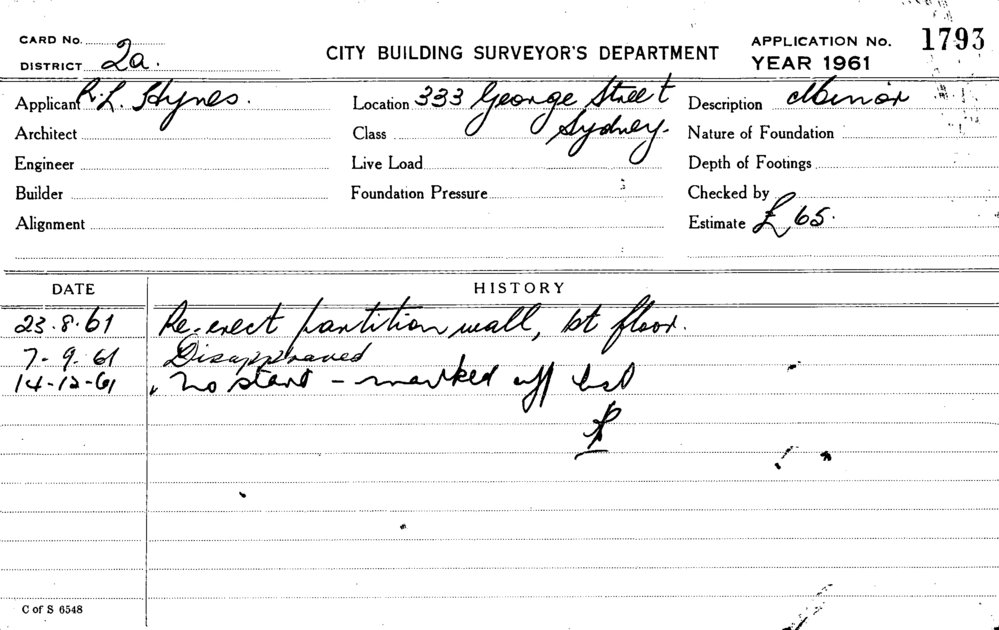 CARD No.
DISTRICT 2a.
CITY BUILDING SURVEYOR'S DEPARTMENT
APPLICATION No. 1793
YEAR 1961
Applicant R. L. Hynes.
Location 333 George Street
Sydney.
Description Minor
Architect
Class
Nature of Foundation
Engineer
Live Load
Depth of Footings
Builder
Foundation Pressure
Checked by
Alignment
Estimate £65.
DATE HISTORY
23.8.61 Re-erect partition wall, 1st floor.
7-9.61 Disapproved
14-12-61 no start - marked off
C of S 6548